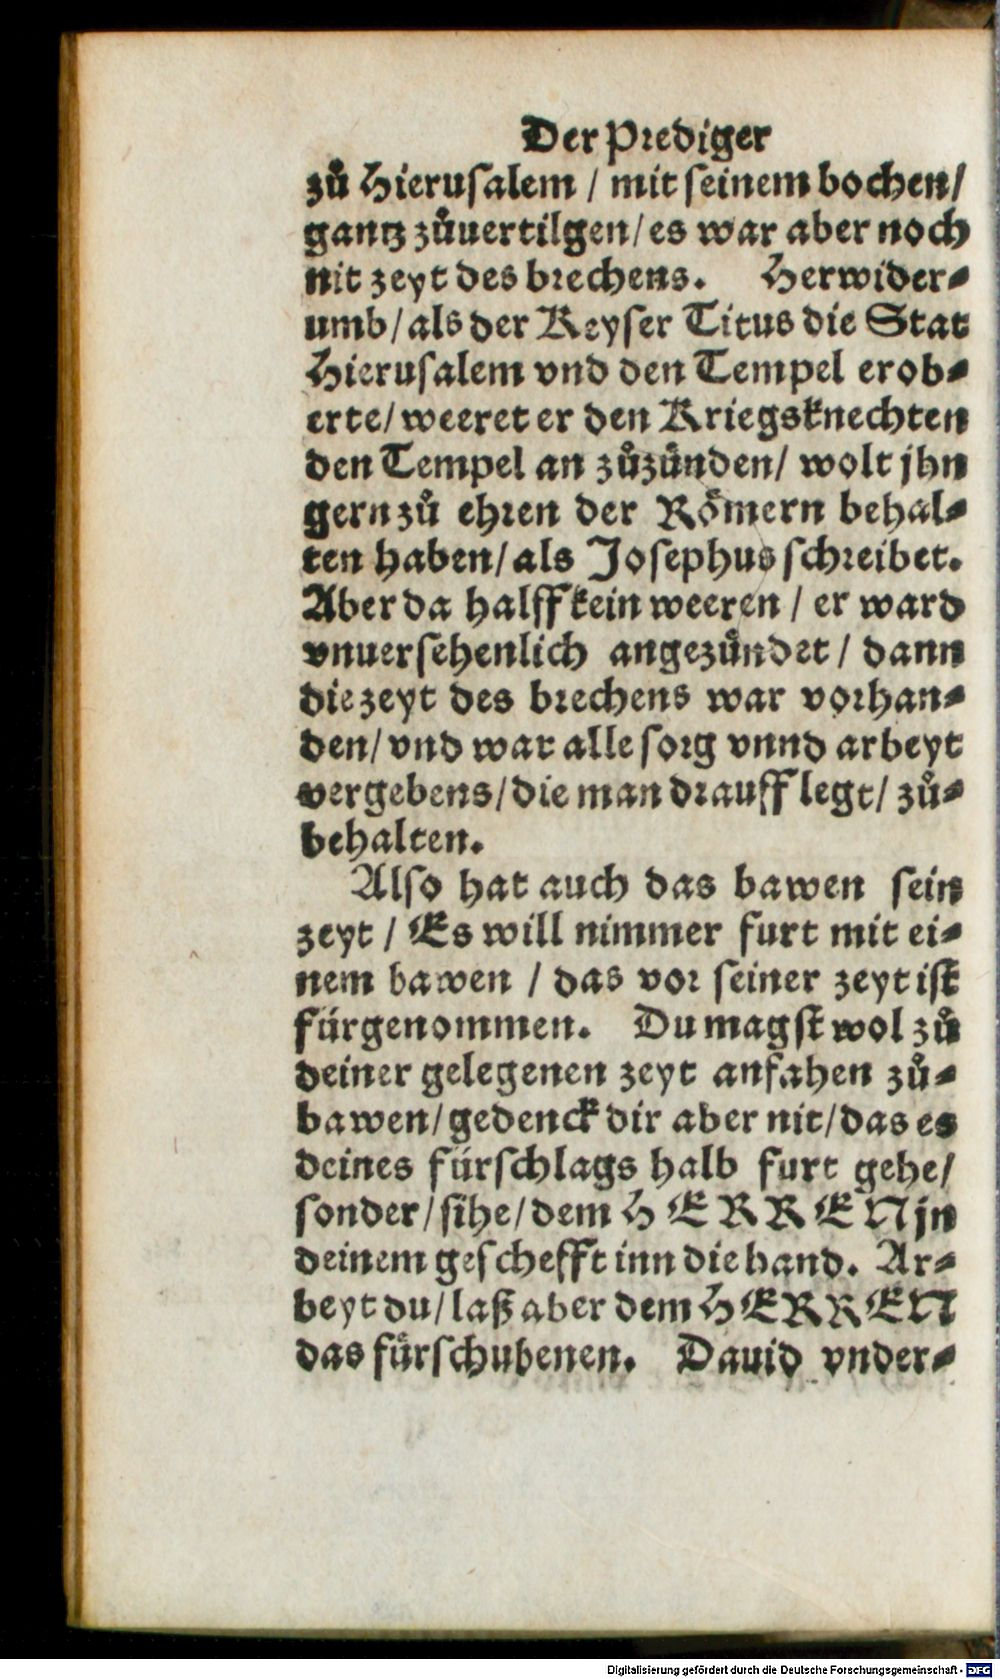 Der Prediger
zů Hierusalem / mit seinem bochen/
gantz zůuertilgen/es war aber noch
nit zeyt des brechens. Herwider-
umb/als der Keyser Titus die Stat
Hierusalem vnd den Tempel erob-
erte/weeret er den Kriegsknechten
den Tempel an zůzünden/ wolt jhn
gern zů ehren der Römern behal-
ten haben/als Josephus schreibet.
Aber da halff kein weeren / er ward
vnuersehenlich angezündet / dann
die zeyt des brechens war vorhan-
den/vnd war alle sorg vnnd arbeyt
vergebens/die man drauff legt/ zů-
behalten.
Also hat auch das bawen sein
zeyt / Es will nimmer furt mit ei-
nem bawen / das vor seiner zeyt ist
fürgenommen. Du magst wol zů
deiner gelegenen zeyt anfahen zů-
bawen/gedenck dir aber nit/das es
deines fürschlags halb furt gehe/
sonder/sihe/dem HERREN jn
deinem geschefft inn die hand. Ar-
beyt du/laß aber dem HERREN
das fürschubenen. Dauid vnder-
Digitalisierung gefördert durch die Deutsche Forschungsgemeinschaft - DFG